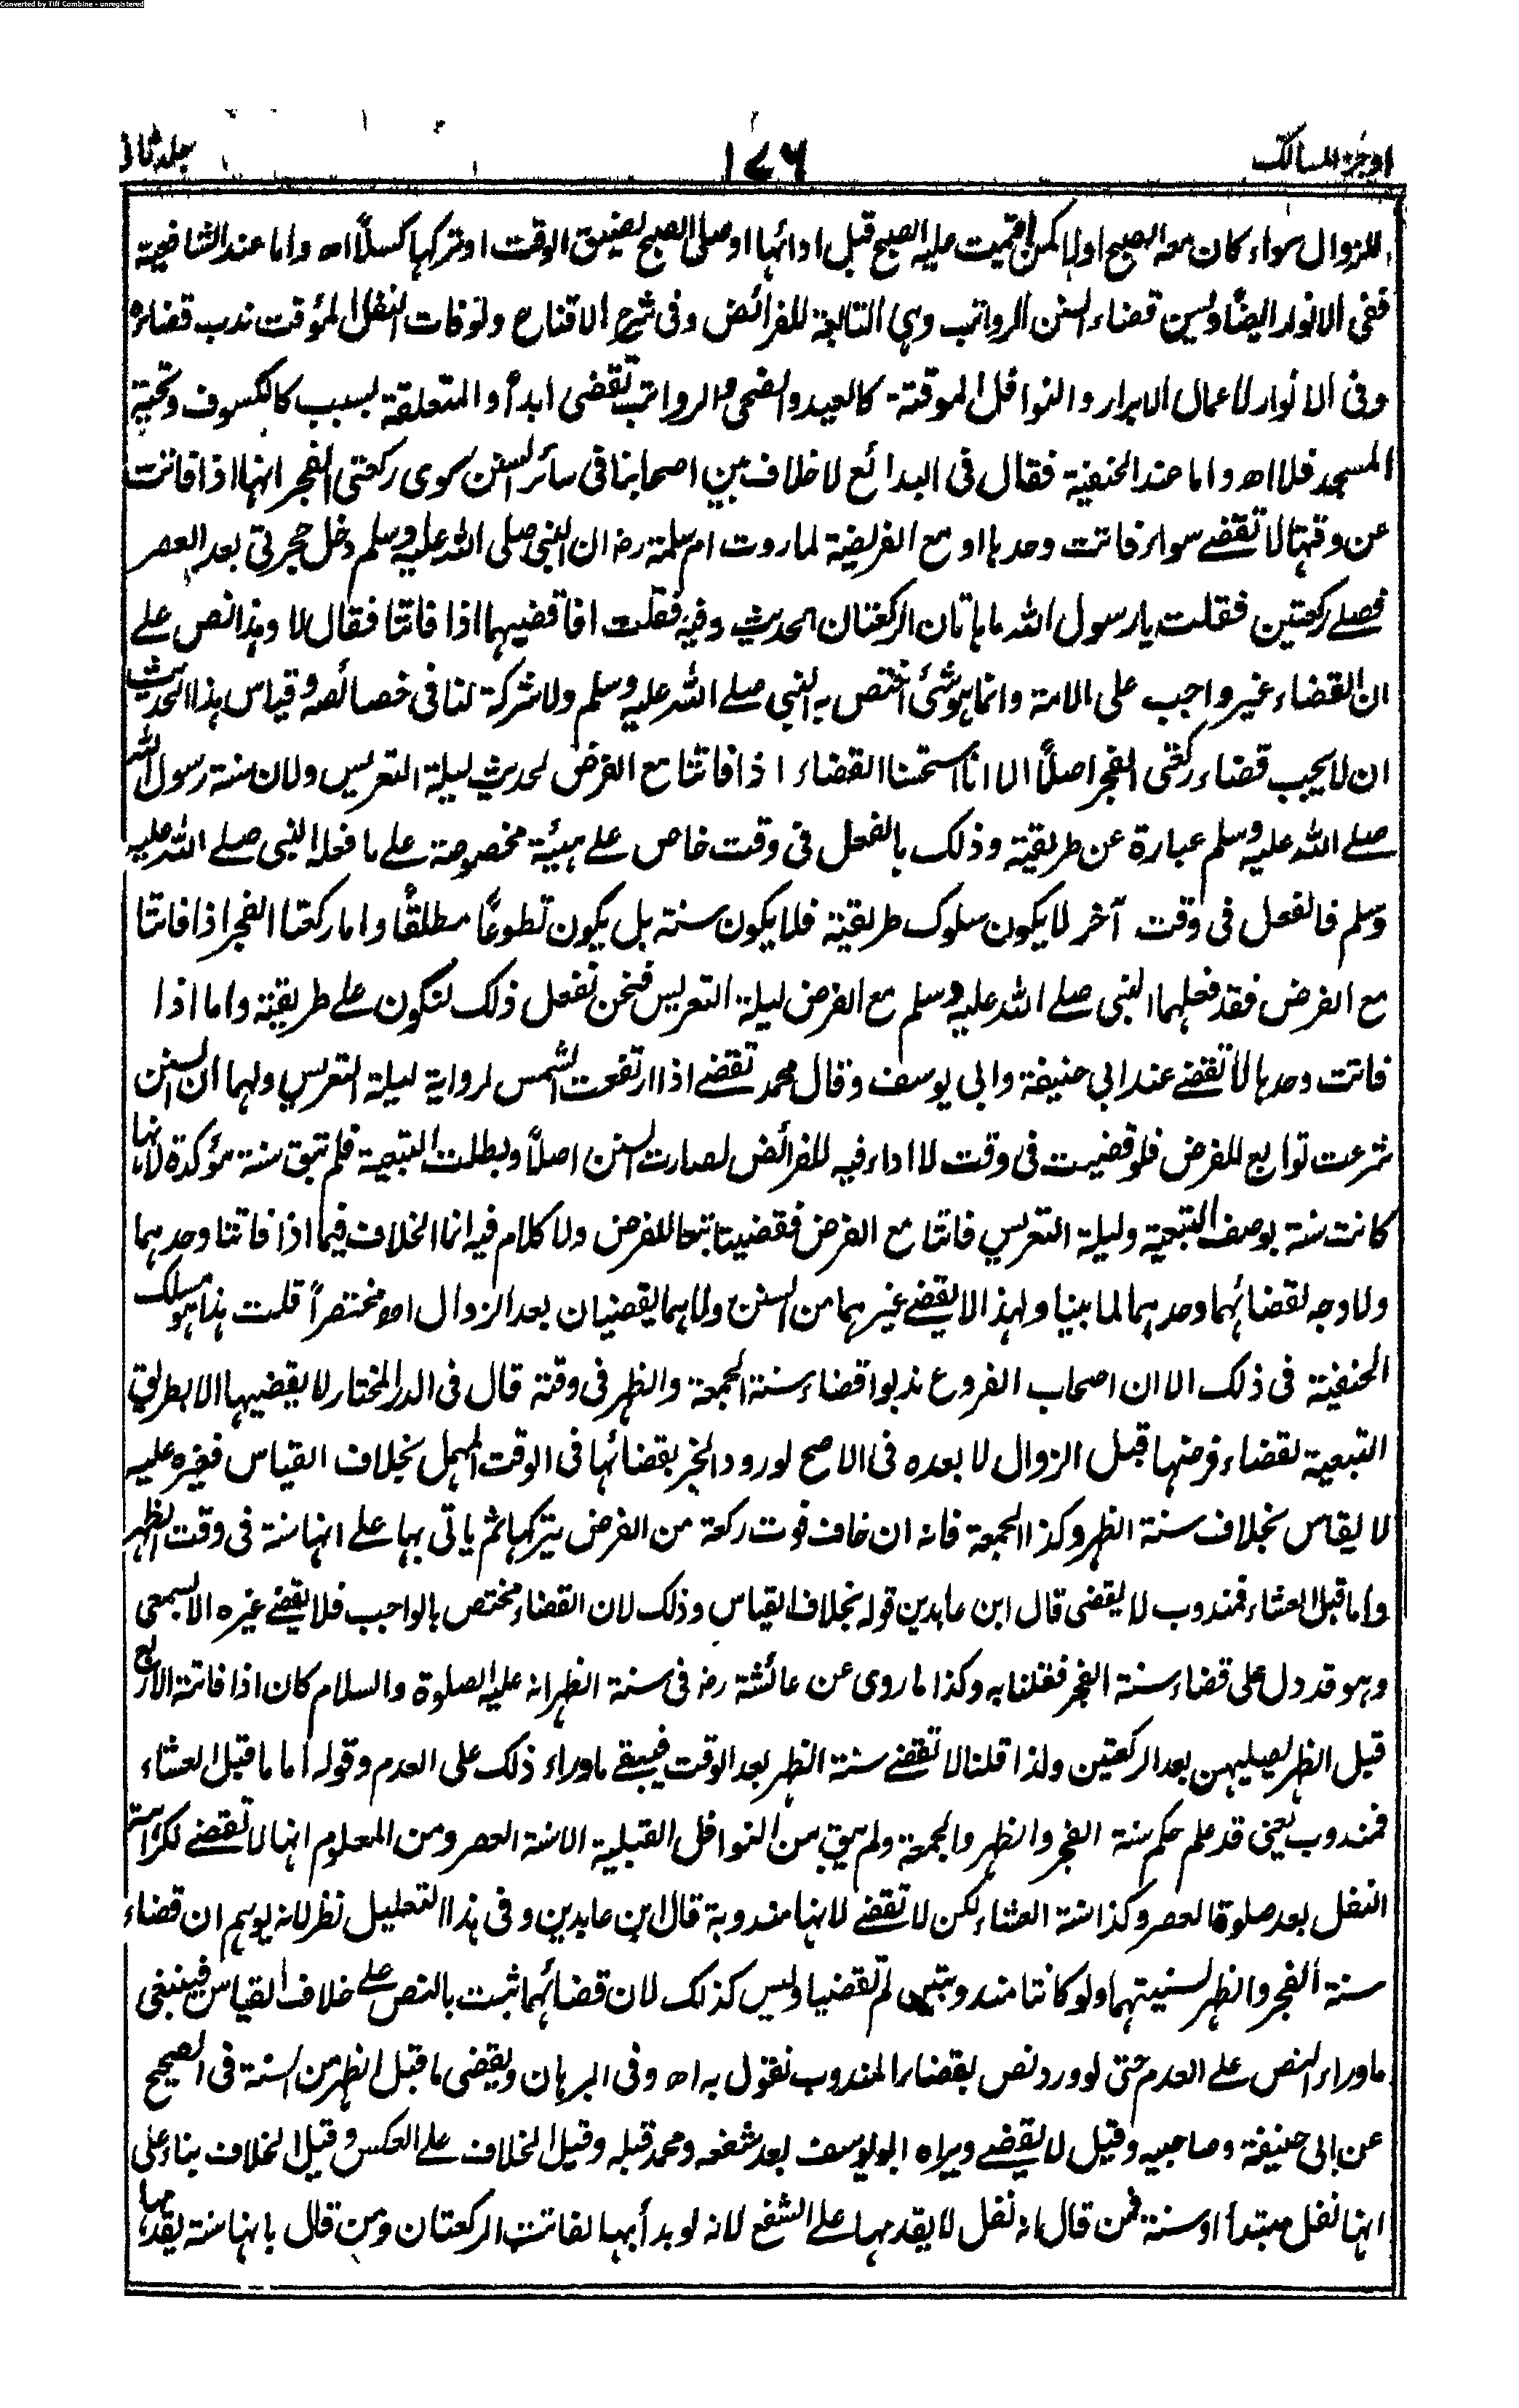 Converted by Tiff Combine - unregistered
اوجز المسالك ١٤٦ جلد ثانی
للزوال سواء كان معه الصبح اولا كمن اقيمت عليه الصبح قبل ادائها او صلى الصبح لضيق الوقت او تركها كسلاً اه واما عند الشافعية
ففى الانوار ايضاً ويسن قضاء السنن الرواتب وهى التابعة للفرائض وفى شرح الاقناع ولو فات النفل المؤقت ندب قضاؤه
وفى الانوار لاعمال الابرار والنوافل الموقتة كالعيد والضحى والرواتب تقضى ابداً والمتعلقة بسبب كالكسوف وتحية
المسجد فلا اه واما عند الحنفية فقال فى البدائع لا خلاف بين اصحابنا فى سائر السنن سوى ركعتى الفجر انها اذا فاتت
عن وقتها لا تقضے سواء فاتت وحدها او مع الفريضة لما روت ام سلمة رضـ ان النبى صلى الله عليه وسلم دخل حجرتى بعد العصر
فصلے ركعتين فقلت يا رسول الله ما هاتان الركعتان الحديث وفيه فقلت افاقضيهما اذا فاتتا فقال لا وهذا نص علے
ان القضاء غير واجب على الامة وانما هو شئ اختص به النبى صلے الله عليه وسلم ولا شركة لنا فى خصائصه وقياس هذا الحديث
ان لا يجب قضاء ركعتى الفجر اصلاً الا انا استحسنا القضاء اذا فاتتا مع الفرض لحديث ليلة التعريس ولان سنة رسول الله
صلے الله عليه وسلم عبارة عن طريقية وذلك بالفعل فى وقت خاص علے هيئة مخصوصة علے ما فعله النبى صلے الله عليه
وسلم فالفعل فى وقت آخر لا يكون سلوك طريقية فلا يكون سنة بل يكون تطوعاً مطلقاً واما ركعتا الفجر اذا فاتتا
مع الفرض فقد فعلهما النبى صلے الله عليه وسلم مع الفرض ليلة التعريس فنحن نفعل ذلك لنكون علے طريقته واما اذا
فاتت وحدها لا تقضے عند ابى حنيفة وابى يوسف وقال محمد تقضے اذا ارتفعت الشمس لرواية ليلة التعريس ولهما ان السنن
شرعت توابع للفرض فلو قضيت فى وقت لا اداء فيه للفرائض لصارت السنن اصلاً وبطلت التبعية فلم تبق سنة مؤكدة لانها
كانت سنة بوصف التبعية وليلة التعريس فاتتا مع الفرض فقضيتا تبعا للفرض ولا كلام فيه انما الخلاف فيما اذا فاتتا وحدهما
ولا وجه لقضائهما وحدهما لما بينا ولهذا لا يقضے غيرهما من السنن ولا هما يقضيان بعد الزوال اه مختصراً قلت هذا هو مسلك
الحنفية فى ذلك الا ان اصحاب الفروع ندبوا قضاء سنة الجمعة والظهر فى وقته قال فى الدر المختار لا يقضيها الا بطريق
التبعية لقضاء فرضها قبل الزوال لا بعده فى الاصح لورود الخبر بقضائها فى الوقت المهمل بخلاف القياس فغيره عليه
لا يقاس بخلاف سنة الظهر وكذا الجمعة فانه ان خاف فوت ركعة من الفرض يتركها ثم ياتى بها علے انها سنة فى وقت الظهر
واما قبل العشاء فمندوب لا يقضى قال ابن عابدين قوله بخلاف القياس وذلك لان القضاء مختص بالواجب فلا يقضے غيره الا بسمعى
وهو قد دل على قضاء سنة الفجر فقلنا به وكذا ما روى عن عائشة رضـ فى سنة الظهر انه عليه الصلوة والسلام كان اذا فاتته الاربع
قبل الظهر يصليهن بعد الركعتين ولذا قلنا لا تقضے سنة الظهر بعد الوقت فيبقے ما وراء ذلك على العدم وقوله اما ما قبل العشاء
فمندوب يعنى قد علم حكم سنة الفجر والظهر والجمعة ولم يبق من النوافل القبلية الا سنة العصر ومن المعلوم انها لا تقضے لكراهة
النفل بعد صلوة العصر وكذا سنة العشاء لكن لا تقضے لانها مندوبة قال ابن عابدين وفى هذا التعليل نظر لانه يوهم ان قضاء
سنة الفجر والظهر لسنيتهما ولو كانتا مندوبتين لم تقضيا وليس كذلك لان قضائهما ثبت بالنص علے خلاف القياس فينبغى
ما وراء النص علے العدم حتى لو ورد نص بقضاء المندوب نقول به اه وفى البرهان ويقضى ما قبل الظهر من السنة فى الصحيح
عن ابى حنيفة وصاحبيه وقيل لا يقضے ويراه ابو يوسف بعد شفعه ومحمد قبله وقيل الخلاف علے العكس وقيل الخلاف بناء على
انها نفل مبتدأ او سنة فمن قال انه نفل لا يقدمها علے الشفع لانه لو بدأ بها لفاتت الركعتان ومن قال بانها سنة يقدمها